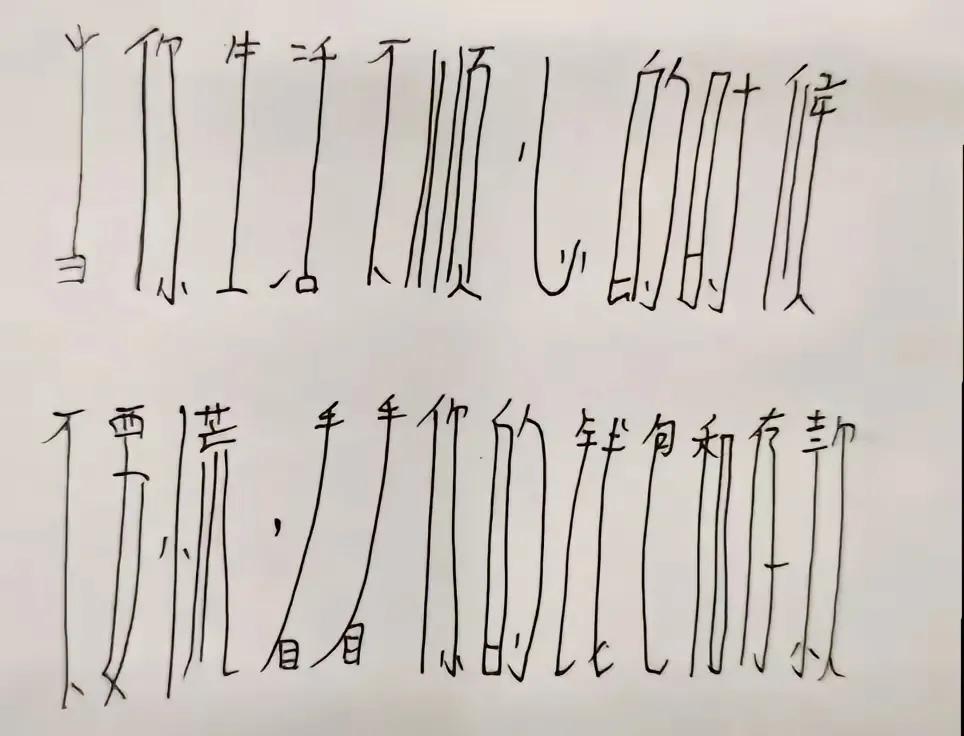 当你生活不顺心的时候
不要慌，看看你的钱包和存款